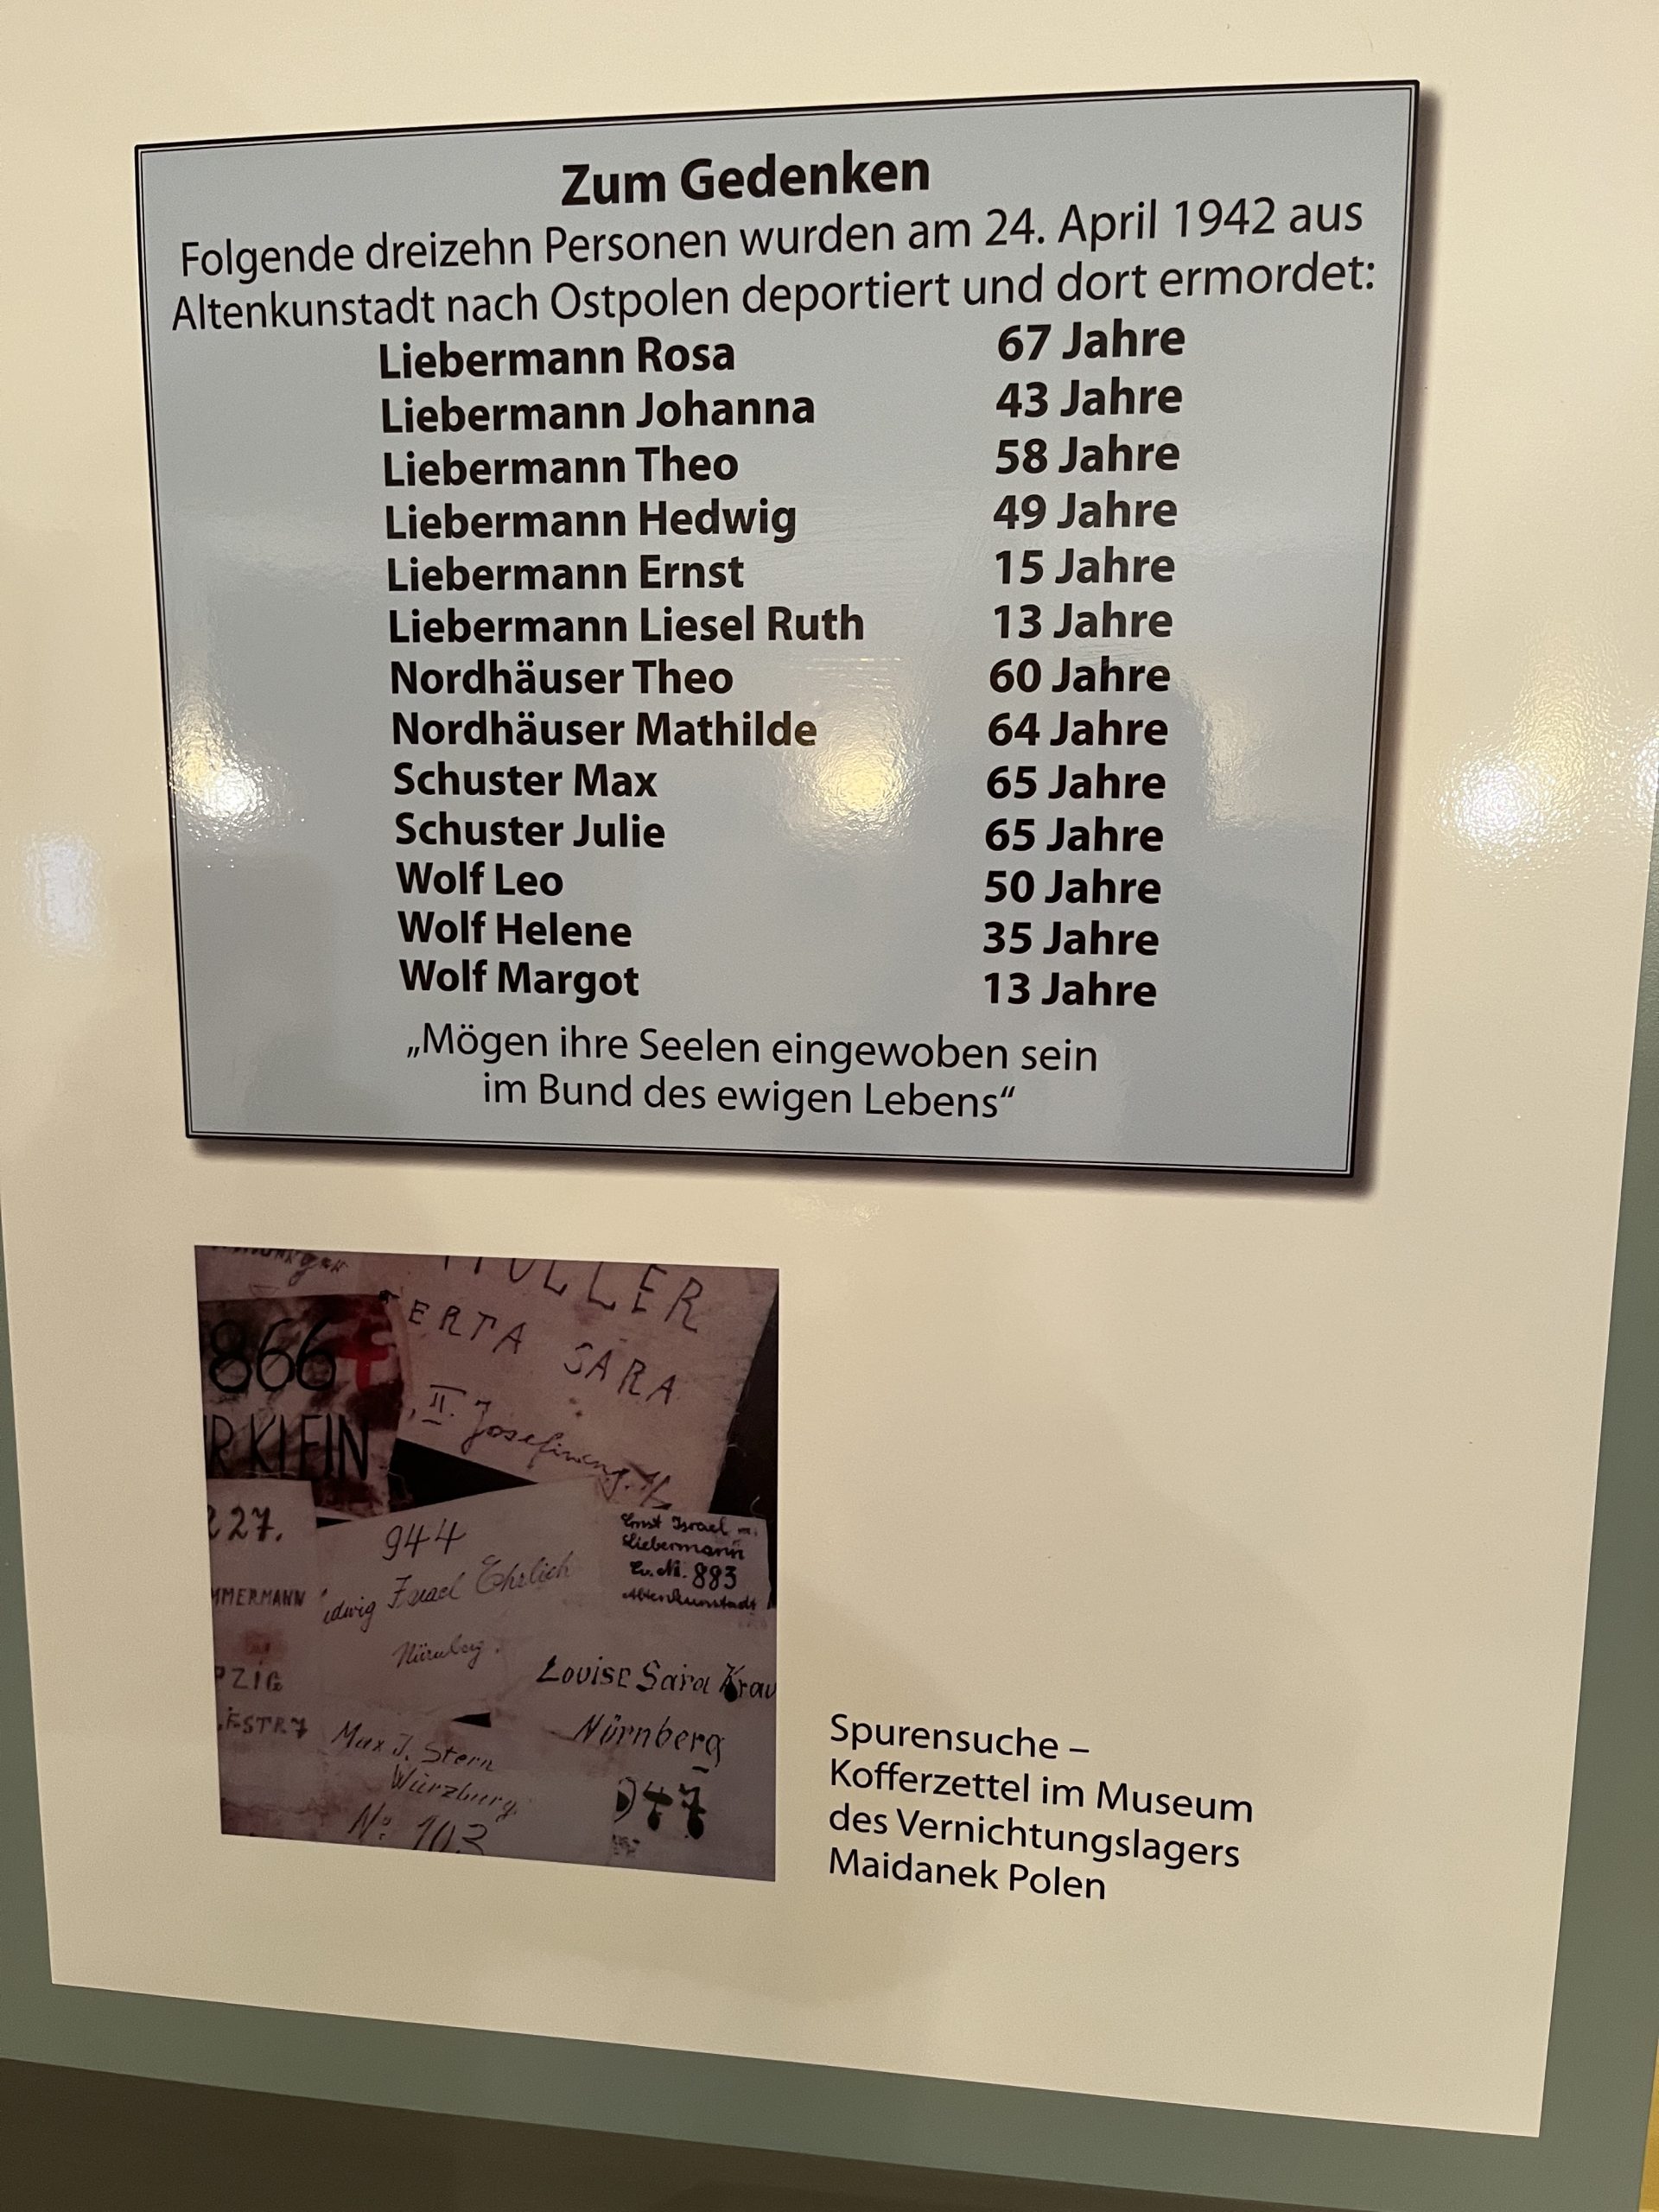 Zum Gedenken
Folgende dreizehn Personen wurden am 24. April 1942 aus
Altenkunstadt nach Ostpolen deportiert und dort ermordet:
Liebermann Rosa 67 Jahre
Liebermann Johanna 43 Jahre
Liebermann Theo 58 Jahre
Liebermann Hedwig 49 Jahre
Liebermann Ernst 15 Jahre
Liebermann Liesel Ruth 13 Jahre
Nordhäuser Theo 60 Jahre
Nordhäuser Mathilde 64 Jahre
Schuster Max 65 Jahre
Schuster Julie 65 Jahre
Wolf Leo 50 Jahre
Wolf Helene 35 Jahre
Wolf Margot 13 Jahre
„Mögen ihre Seelen eingewoben sein
im Bund des ewigen Lebens“
ULLER
ERTA SARA
II. Josefineng.
866
R KLEIN
227.
MMERMANN
PZIG
ESTR 7
944
udwig Israel Ehrlich
Nürnberg.
Ernst Israel
Liebermann
Ev. Nr. 883
Altenkunstadt
Louise Sara Krau
Nürnberg
947
Max J. Stern
Würzburg
No. 103
Spurensuche –
Kofferzettel im Museum
des Vernichtungslagers
Maidanek Polen